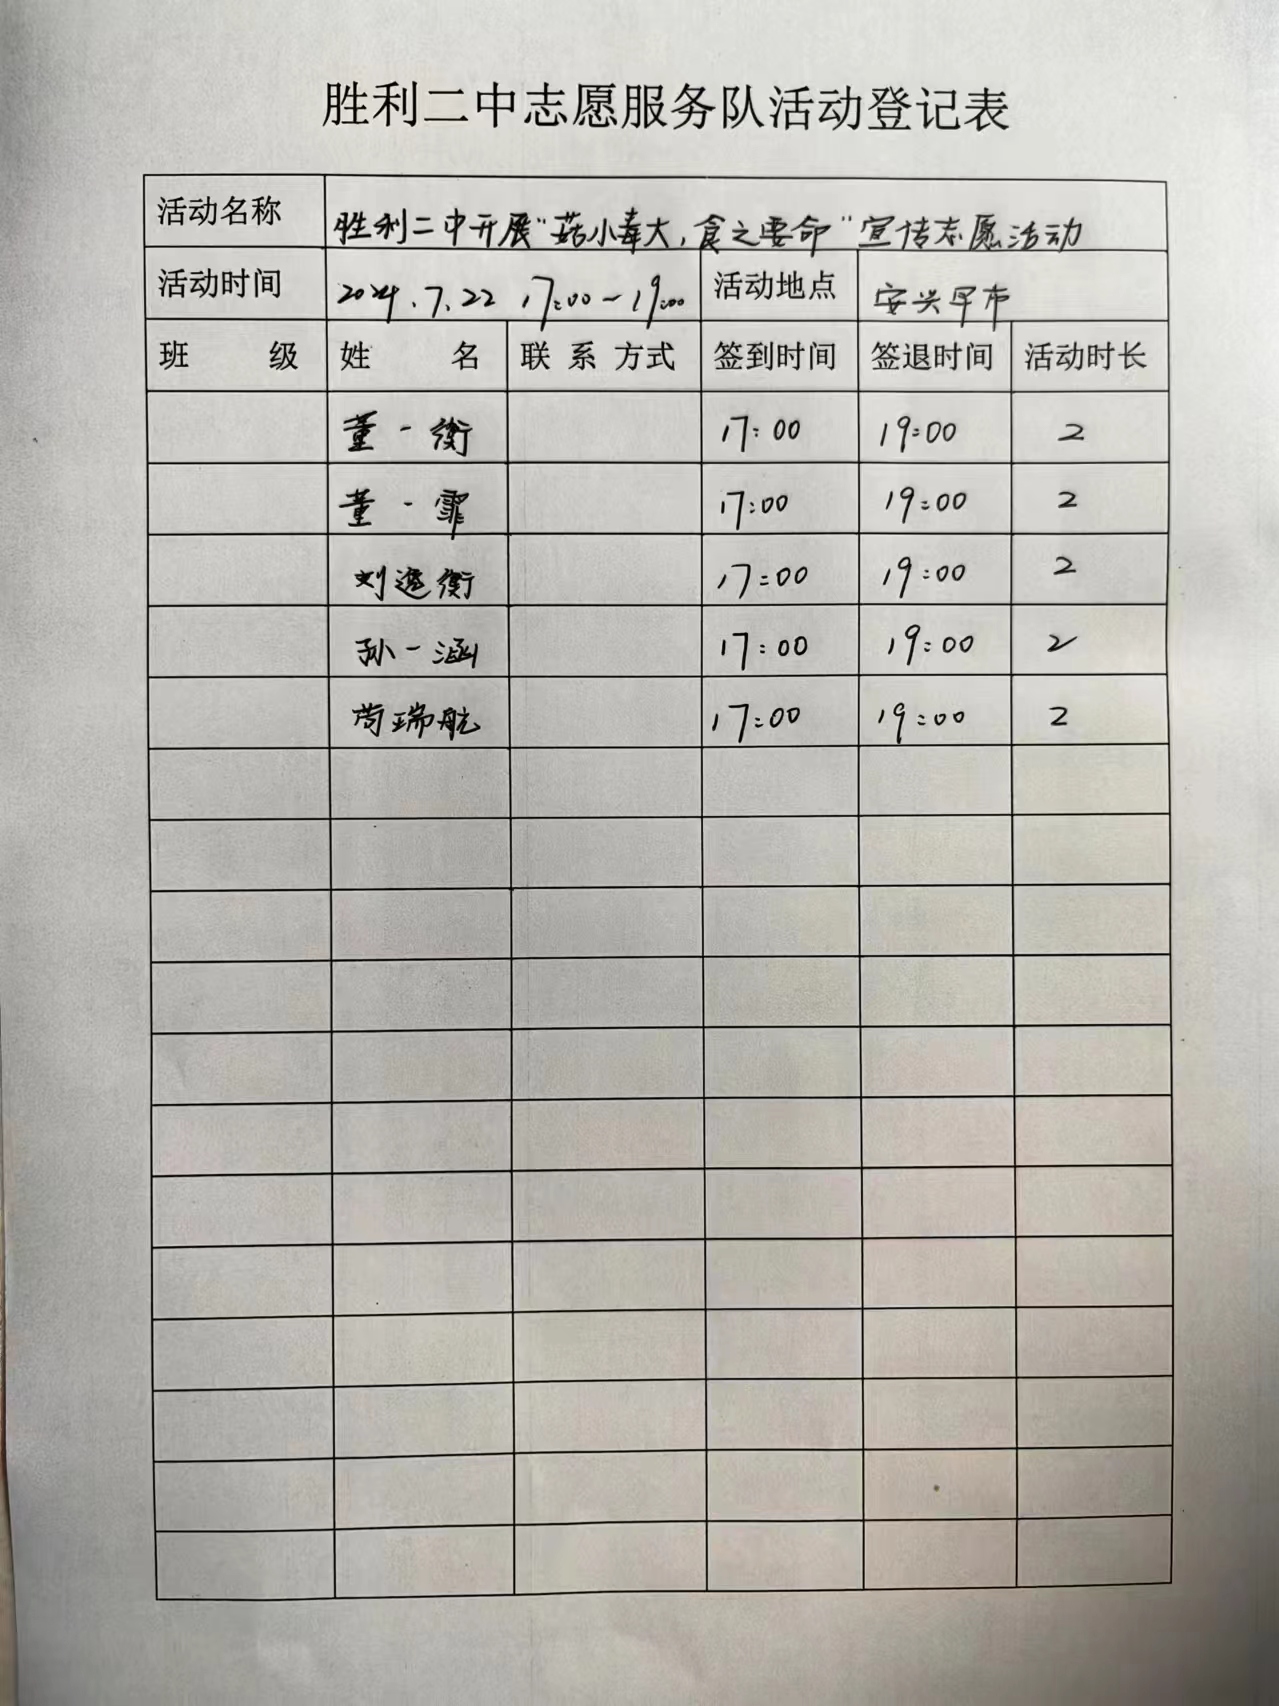 胜利二中志愿服务队活动登记表
活动名称 胜利二中开展“菇小毒大，食之要命”宣传志愿活动
活动时间 2024.7.22 17:00-19:00 活动地点 安兴早市
班 级 姓 名 联 系 方式 签到时间 签退时间 活动时长
董一衡 17:00 19:00 2
董一霏 17:00 19:00 2
刘逸衡 17:00 19:00 2
孙一涵 17:00 19:00 2
苟瑞航 17:00 19:00 2